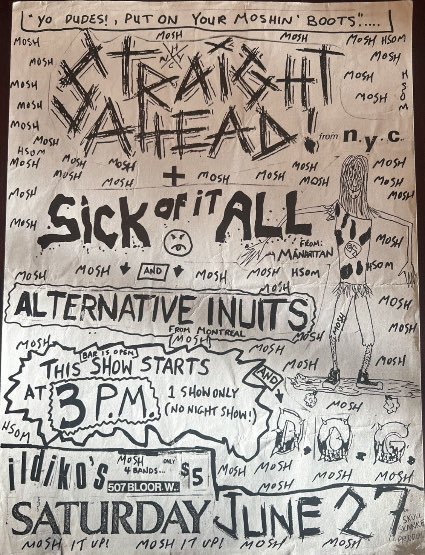 "YO DUDES!, PUT ON YOUR MOSHIN' BOOTS".....
MOSH MOSH MOSH MOSH HSOM
NYHC
STRAIGHT
AHEAD! from n.y.c.
MOSH MOSH
MOSH MOSH
MOSH
MOSH
MOSH
HSOM
HSOM
MOSH MOSH MOSH MOSH MOSH
MOSH + MOSH MOSH MOSH
MOSH
MOSH
SICK OF IT ALL
FROM:
MANHATTAN
MOSH
HSOM
MOSH MOSH AND MOSH MOSH HSOM
MOSH
ALTERNATIVE INUITS
FROM MONTREAL
MOSH
MOSH
MOSH
MOSH
MOSH
MOSH
BAR IS OPEN
THIS SHOW STARTS
AT 3 P.M. 1 SHOW ONLY
(NO NIGHT SHOW!)
AND
MOSH
MOSH
HSOM
M.O.G.
MOSH MOSH MOSH
MOSH MOSH MOSH
ildiko's
MOSH
4 BANDS... ONLY $5
507 BLOOR W.
SATURDAY JUNE 27
MOSH IT UP! MOSH IT UP! MOSH MOSH